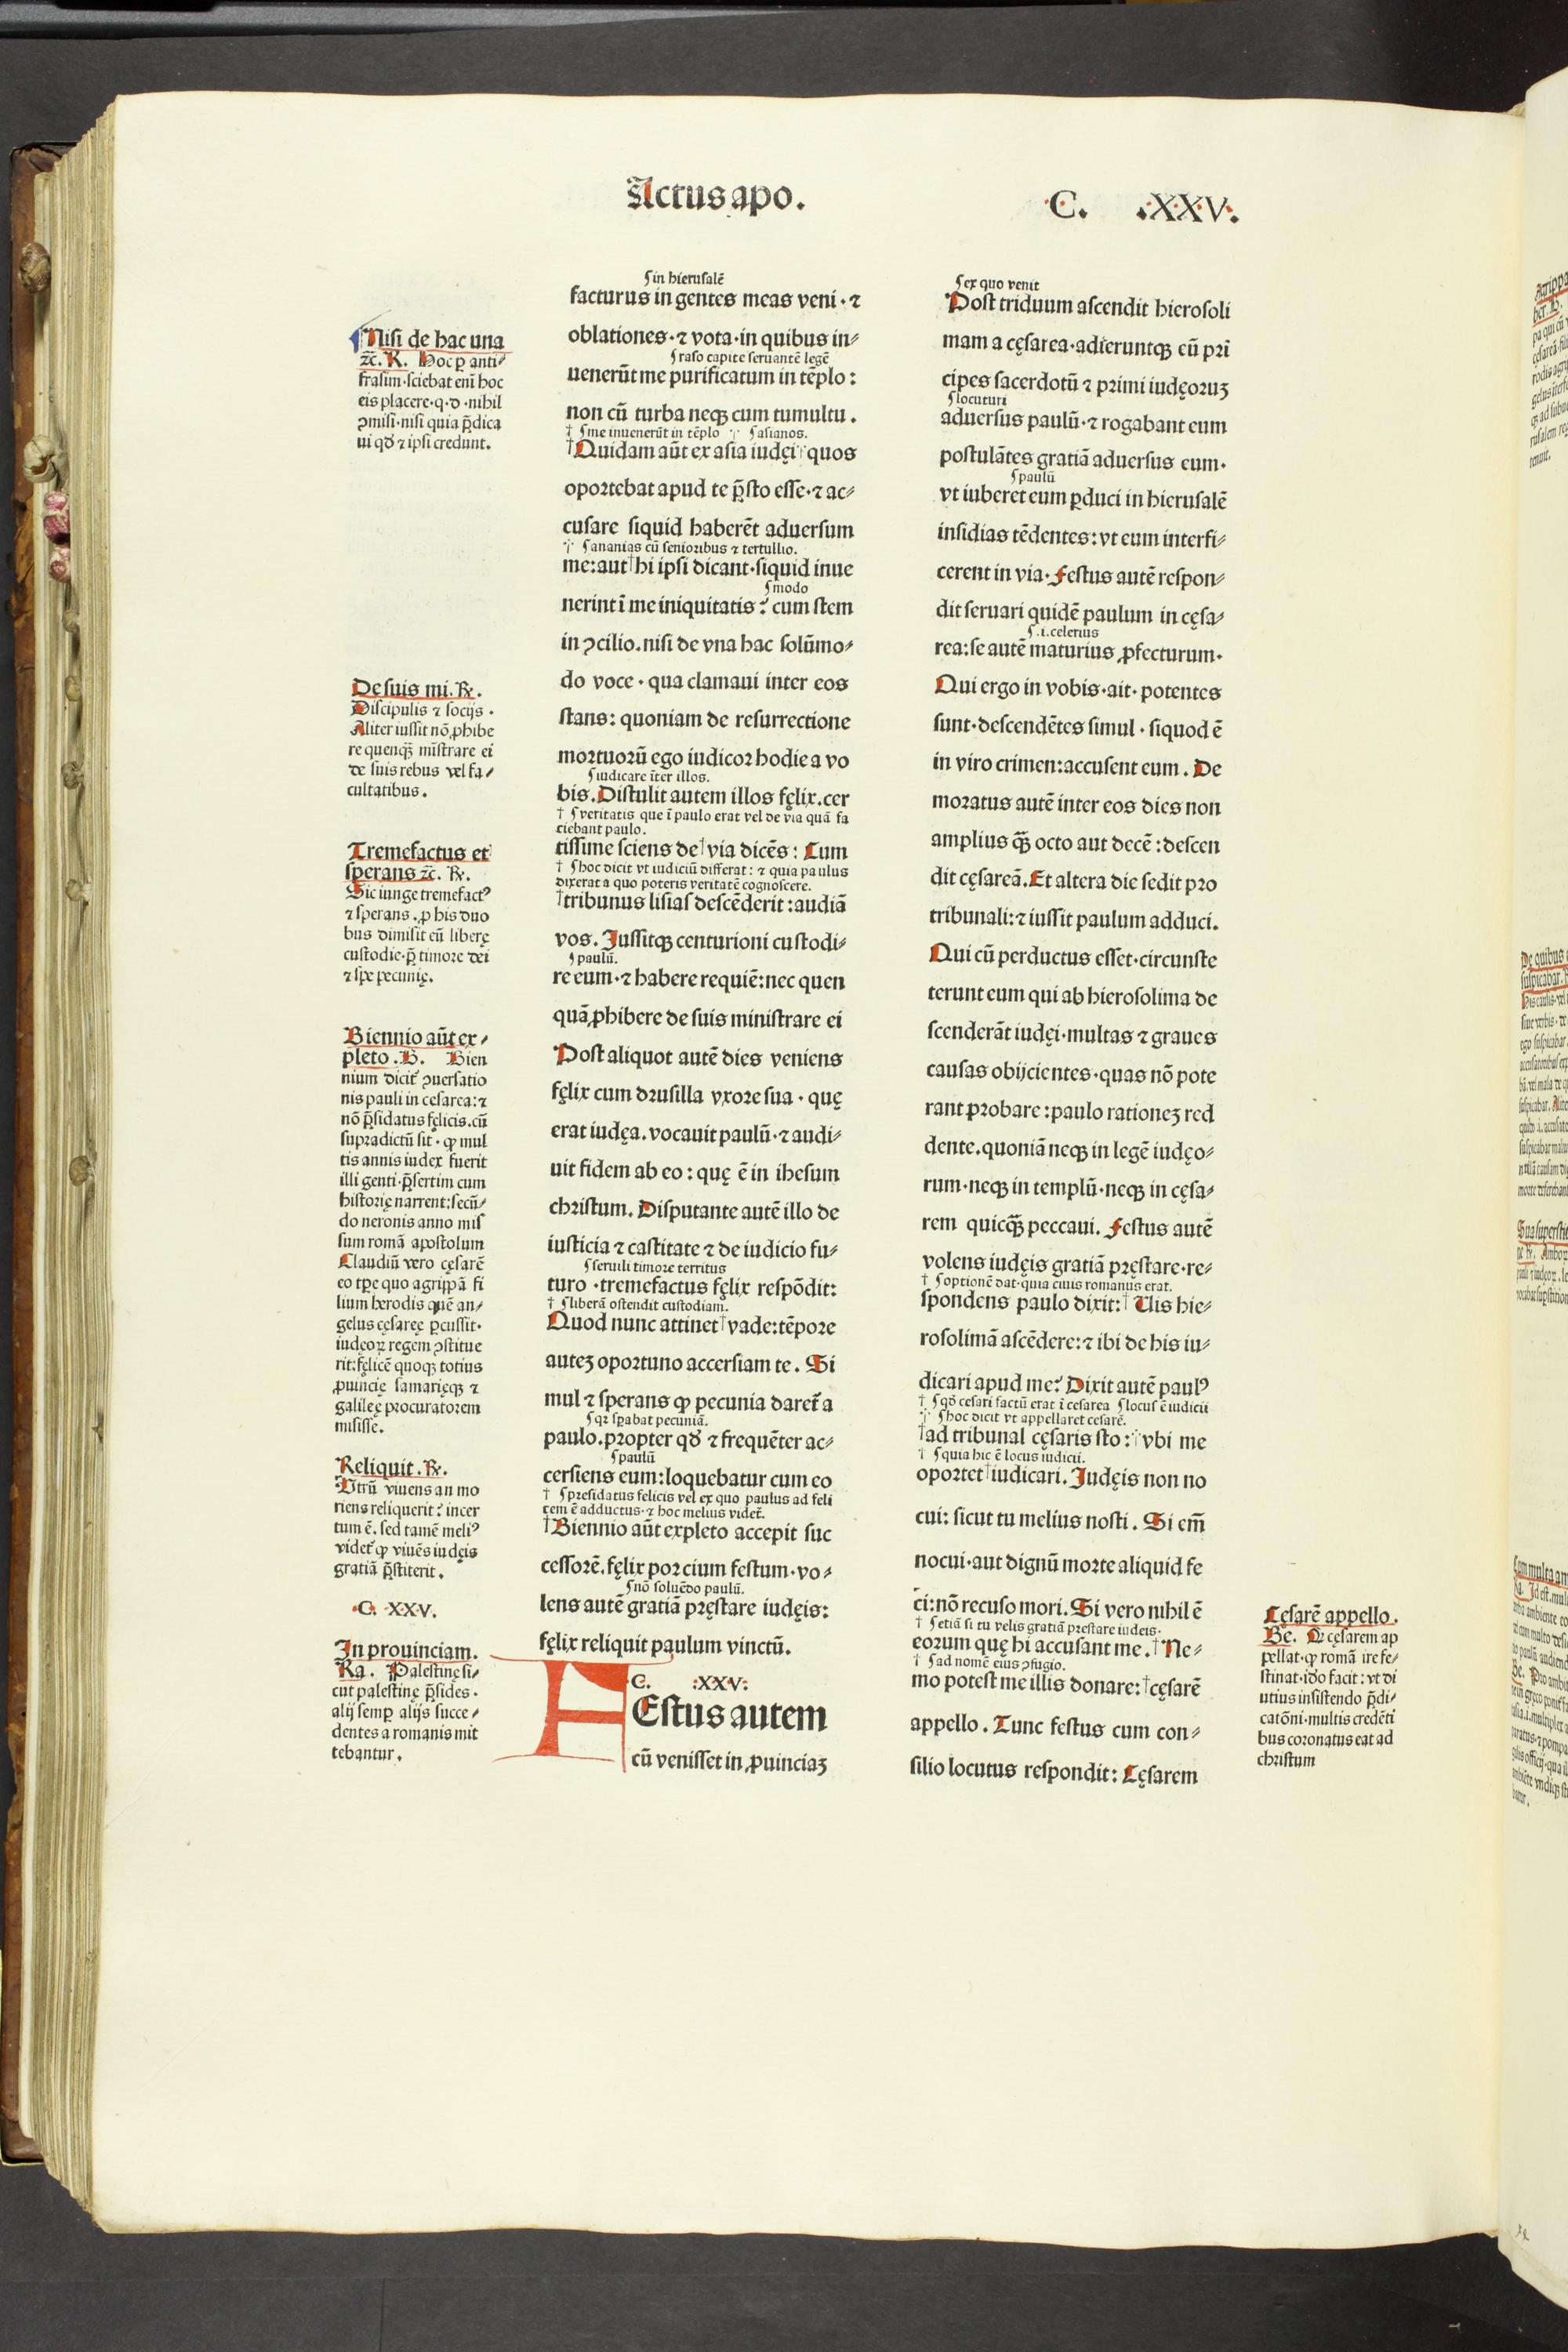 Actus apo.
C. .XXV.
¶Nisi de hac una
⁊c̄. R. Hoc ꝑ anti⸗
frasim·sciebat enī hoc
eis placere·q·d·nihil
ꝯmisi·nisi quia p̄dica
ui qđ ⁊ ipsi credunt.
De suis mi. Rͣ.
Discipulis ⁊ socijs·
Aliter iussit nō ꝓhibe
re quenqꝫ mīstrare ei
de suis rebus vel fa⸗
cultatibus.
Tremefactus et
sperans ⁊c̄. Rͣ.
Sic iunge tremefactꝰ
⁊ sperans. ꝓ his duo
bus dimisit eū liberę
custodię·p̄ timore dei
⁊ spe pecunię.
Biennio aūt ex⸗
pleto. B. Bien
nium dicit᷑ ꝯuersatio
nis pauli in cesarea:⁊
nō p̄sidatus fęlicis.cū
supradictū sit·ꝙ mul
tis annis iudex fuerit
illi genti·p̄sertim cum
historię narrent:secū⸗
do neronis anno mis
sum romā apostolum
Claudiū vero cęsarē
eo tꝑe quo agrippā fi
lium herodis quē an⸗
gelus cęsaręę ꝑcussit·
iudęoꝝ regem ꝯstitue
rit:fęlicē quoqꝫ totius
ꝓuincię samarięqꝫ ⁊
galileę procuratorem
misisse.
Reliquit. Rͣ.
Vtrū viuens an mo
riens reliquerit? incer
tum ē. sed tamē meliꝰ
videt᷑ ꝙ viuēs iudęis
gratiā p̄stiterit.
·C. XXV.
In prouinciam.
Ra. Palestinę si⸗
cut palestinę p̄sides·
alij semꝑ alijs succe⸗
dentes a romanis mit
tebantur.
ʃin hierusalē
facturus in gentes meas veni·⁊
oblationes·⁊ vota·in quibus in⸗
ʃraso capite seruantē legē
uenerūt me purificatum in tēplo:
non cū turba neqꝫ cum tumultu.
† ʃme inuenerūt in tēplo ·|· ʃasianos.
†Quidam aūt ex asia iudęi·|·quos
oportebat apud te p̄sto esse·⁊ ac⸗
cusare siquid haberēt aduersum
·|· ʃananias cū senioribus ⁊ tertullio.
me:aut†hi ipsi dicant·siquid inue
ʃmodo
nerint ī me iniquitatis? cum stem
in ꝯcilio.nisi de vna hac solūmo⸗
do voce·qua clamaui inter eos
stans: quoniam de resurrectione
mortuorū ego iudicor hodie a vo
ʃiudicare īter illos.
bis. Distulit autem illos fęlix.cer
† ʃveritatis que ī paulo erat vel de via quā fa
ciebant paulo.
tissime sciens de†via dicēs: Cum
† ʃhoc dicit vt iudiciū differat: ⁊ quia paulus
dixerat a quo poteris veritatē cognoscere.
†tribunus lisias descēderit:audiā
vos. Jussitqꝫ centurioni custodi⸗
ʃpaulū.
re eum·⁊ habere requiē:nec quen
quā ꝓhibere de suis ministrare ei
Post aliquot autē dies veniens
fęlix cum drusilla vxore sua·quę
erat iudęa.vocauit paulū·⁊ audi⸗
uit fidem ab eo: quę ē in ihesum
christum. Disputante autē illo de
iusticia ⁊ castitate ⁊ de iudicio fu⸗
ʃseruili timore territus
turo·tremefactus fęlix respōdit:
† ʃliberā ostendit custodiam.
Quod nunc attinet†vade:tēpore
auteꝫ oportuno accersiam te. Si
mul ⁊ sperans ꝙ pecunia daret᷑ a
ʃqꝛ sꝑabat pecuniā.
paulo.propter qđ ⁊ frequēter ac⸗
ʃpaulū
cersiens eum:loquebatur cum eo
† ʃpresidatus felicis vel ex quo paulus ad feli
cem ē adductus·⁊ hoc melius videt᷑.
†Biennio aūt expleto accepit suc
cessorē.fęlix porcium festum·vo⸗
ʃnō soluēdo paulū.
lens autē gratiā pręstare iudęis:
fęlix reliquit paulum vinctū.
C. :XXV:
FEstus autem
cū venisset in ꝓuinciaꝫ
ʃex quo venit
Post triduum ascendit hierosoli
mam a cęsarea·adieruntqꝫ eū pri
cipes sacerdotū ⁊ primi iudęoruꝫ
ʃlocuturi
aduersus paulū·⁊ rogabant eum
postulātes gratiā aduersus eum·
ʃpaulū
vt iuberet eum ꝑduci in hierusalē
insidias tēdentes:vt eum interfi⸗
cerent in via·Festus autē respon⸗
dit seruari quidē paulum in cęsa⸗
ʃ.i.celerius
rea:se autē maturius ꝓfecturum·
Qui ergo in vobis·ait·potentes
sunt·descendētes simul·siquod ē
in viro crimen:accusent eum. De
moratus autē inter eos dies non
amplius qꝫ̄ octo aut decē:descen
dit cęsareā. Et altera die sedit pro
tribunali:⁊ iussit paulum adduci.
Qui cū perductus esset·circunste
terunt eum qui ab hierosolima de
scenderāt iudęi·multas ⁊ graues
causas obijcientes·quas nō pote
rant probare:paulo rationeꝫ red
dente.quoniā neqꝫ in legē iudęo⸗
rum·neqꝫ in templū·neqꝫ in cęsa⸗
rem quicqꝫ̄ peccaui. Festus autē
volens iudęis gratiā pręstare·re⸗
† ʃoptionē dat·quia ciuis romanus erat.
spondens paulo dixit:†Vis hie⸗
rosolimā ascēdere:⁊ ibi de his iu⸗
dicari apud me? Dixit autē paulꝰ
† ʃqđ cesari factū erat ī cesarea ʃlocus ē iudicii
·|· ʃhoc dicit vt appellaret cesarē.
†ad tribunal cęsaris sto:·|·vbi me
† ʃquia hic ē locus iudicii.
oportet†iudicari. Judęis non no
cui: sicut tu melius nosti. Si em̄
nocui·aut dignū morte aliquid fe
ci:nō recuso mori. Si vero nihil ē
† ʃetiā si tu velis gratiā prestare iudeis·
eorum quę hi accusant me.†Ne⸗
† ʃad nomē eius ꝯfugio.
mo potest me illis donare:†cęsarē
appello. Tunc festus cum con⸗
silio locutus respondit: Cęsarem
Cęsarē appello.
Be. Q cęsarem ap
pellat·ꝙ romā ire fe⸗
stinat·īdo facit: vt di
utius insistendo p̄di⸗
catōni·multis credēti
bus coronatus eat ad
christum